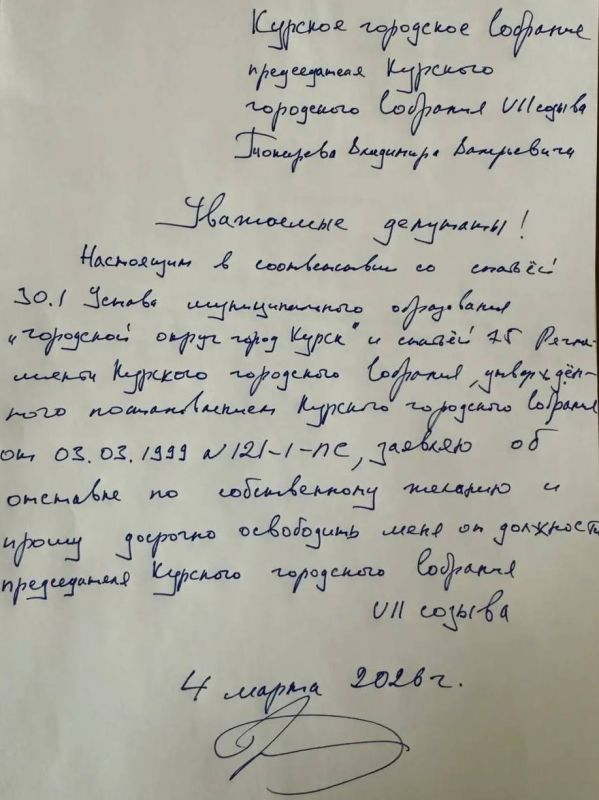 Курское городское Собрание
председателя Курского
городского Собрания VII созыва
Токарева Владимира Валерьевича
Уважаемые депутаты!
Настоящим в соответствии со статьёй
30.1 Устава муниципального образования
"городской округ город Курск" и статьёй 75 Регла-
мента Курского городского Собрания, утверждён-
ного постановлением Курского городского Собрания
от 03.03.1999 № 121-1-ПС, заявляю об
отставке по собственному желанию и
прошу досрочно освободить меня от должности
председателя Курского городского Собрания
VII созыва
4 марта 2026 г.